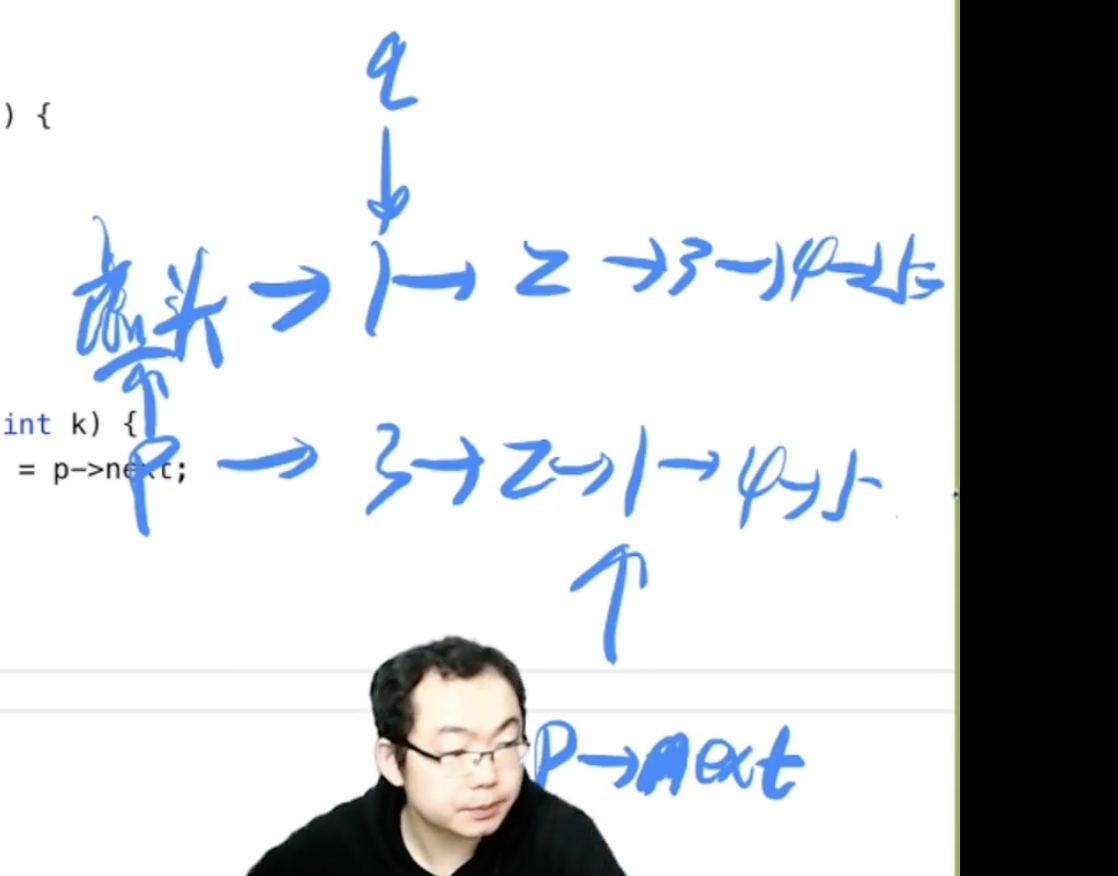 q
) {
虚头 → 1 → 2 → 3 → 4 → 5
int k) {
= p->next;
p → 3 → 2 → 1 → 4 → 5
P→next